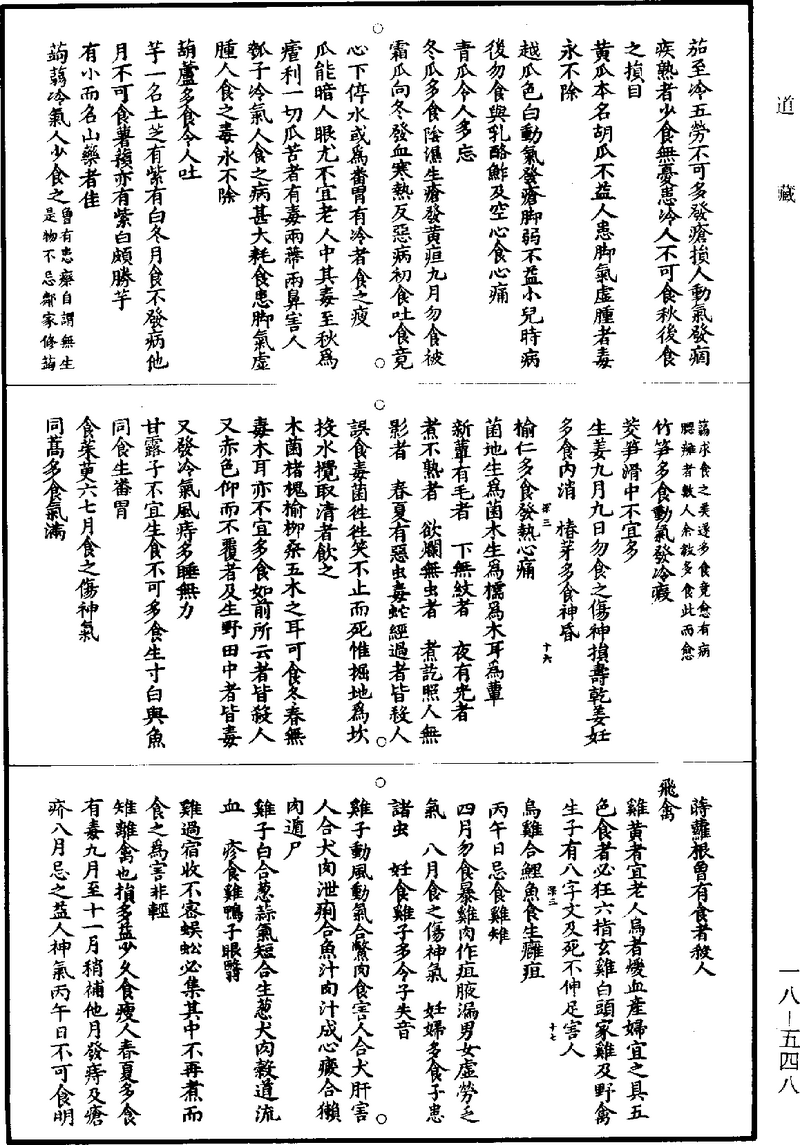 道藏
茄至冷五勞不可多發瘡損人動氣發痼
疾熟者少食無憂患冷人不可食秋後食
之損目
黃瓜本名胡瓜不益人患脚氣虛腫者毒
永不除
越瓜色白動氣發瘡脚弱不益小兒時病
後勿食與乳酪鮓及空心食心痛
青瓜令人多忘
冬瓜多食陰濕生瘡發黃疸九月勿食被
霜瓜向冬發血寒熱反惡病初食吐食竟
心下停水或爲畨胃有冷者食之瘦
瓜能暗人眼尤不宜老人中其毒至秋爲
瘧利一切瓜苦者有毒兩蔕兩鼻害人
瓠子冷氣人食之病甚大耗食患脚氣虛
腫人食之毒永不除
葫蘆多食令人吐
芋一名土芝有紫有白冬月食不發病他
月不可食薯蕷亦有紫白頗勝芋
有小而名山藥者佳
蒟蒻冷氣人少食之曾有患瘵自謂無生是物不忌鄰家修蒟
蒻求食之美遂多食竟愈有病腮癰者數人余教多食此而愈
竹笋多食動氣發冷癥
茭笋滑中不宜多
生姜九月九日勿食之傷神損壽乾姜妊
多食内消 椿芽多食神昏
深三 十六
榆仁多食發熱心痛
菌地生爲菌木生爲檽爲木耳爲蕈
新蕈有毛者 下無紋者 夜有光者
煮不熟者 欲爛無虫者 煮訖照人無
影者 春夏有惡虫毒蛇經過者皆殺人
誤食毒菌徃徃笑不止而死惟掘地爲坎
投水攪取清者飲之
木菌楮槐榆柳桑五木之耳可食冬春無
毒木耳亦不宜多食如前所云者皆殺人
又赤色仰而不覆者及生野田中者皆毒
又發冷氣風痔多睡無力
甘露子不宜生食不可多食生寸白與魚
同食生畨胃
食茱萸六七月食之傷神氣
同蒿多食氣滿
蒔蘿根曾有食者殺人
飛禽
雞黃者宜老人烏者煖血産婦宜之具五
色食者必狂六指玄雞白頭家雞及野禽
生子有八字文及死不伸足害人
深三 十七
烏雞合鯉魚食生癰疽
丙午日忌食雞雉
四月勿食暴雞肉作疽腋漏男女虛勞乏
氣 八月食之傷神氣 妊婦多食子患
諸虫 妊食雞子多令子失音
雞子動風動氣合鱉肉食害人合犬肝害
人合犬肉泄痢合魚汁肉汁成心瘕合獺
肉遁尸
雞子白合葱蒜氣短合生葱犬肉穀道流
血 疹食雞鴨子眼翳
雞過宿收不密蜈蚣必集其中不再煮而
食之爲害非輕
雉離禽也損多益少久食瘦人春夏多食
有毒九月至十一月稍補他月發痔及瘡
疥八月忌之益人神氣丙午日不可食明
一八-五四八